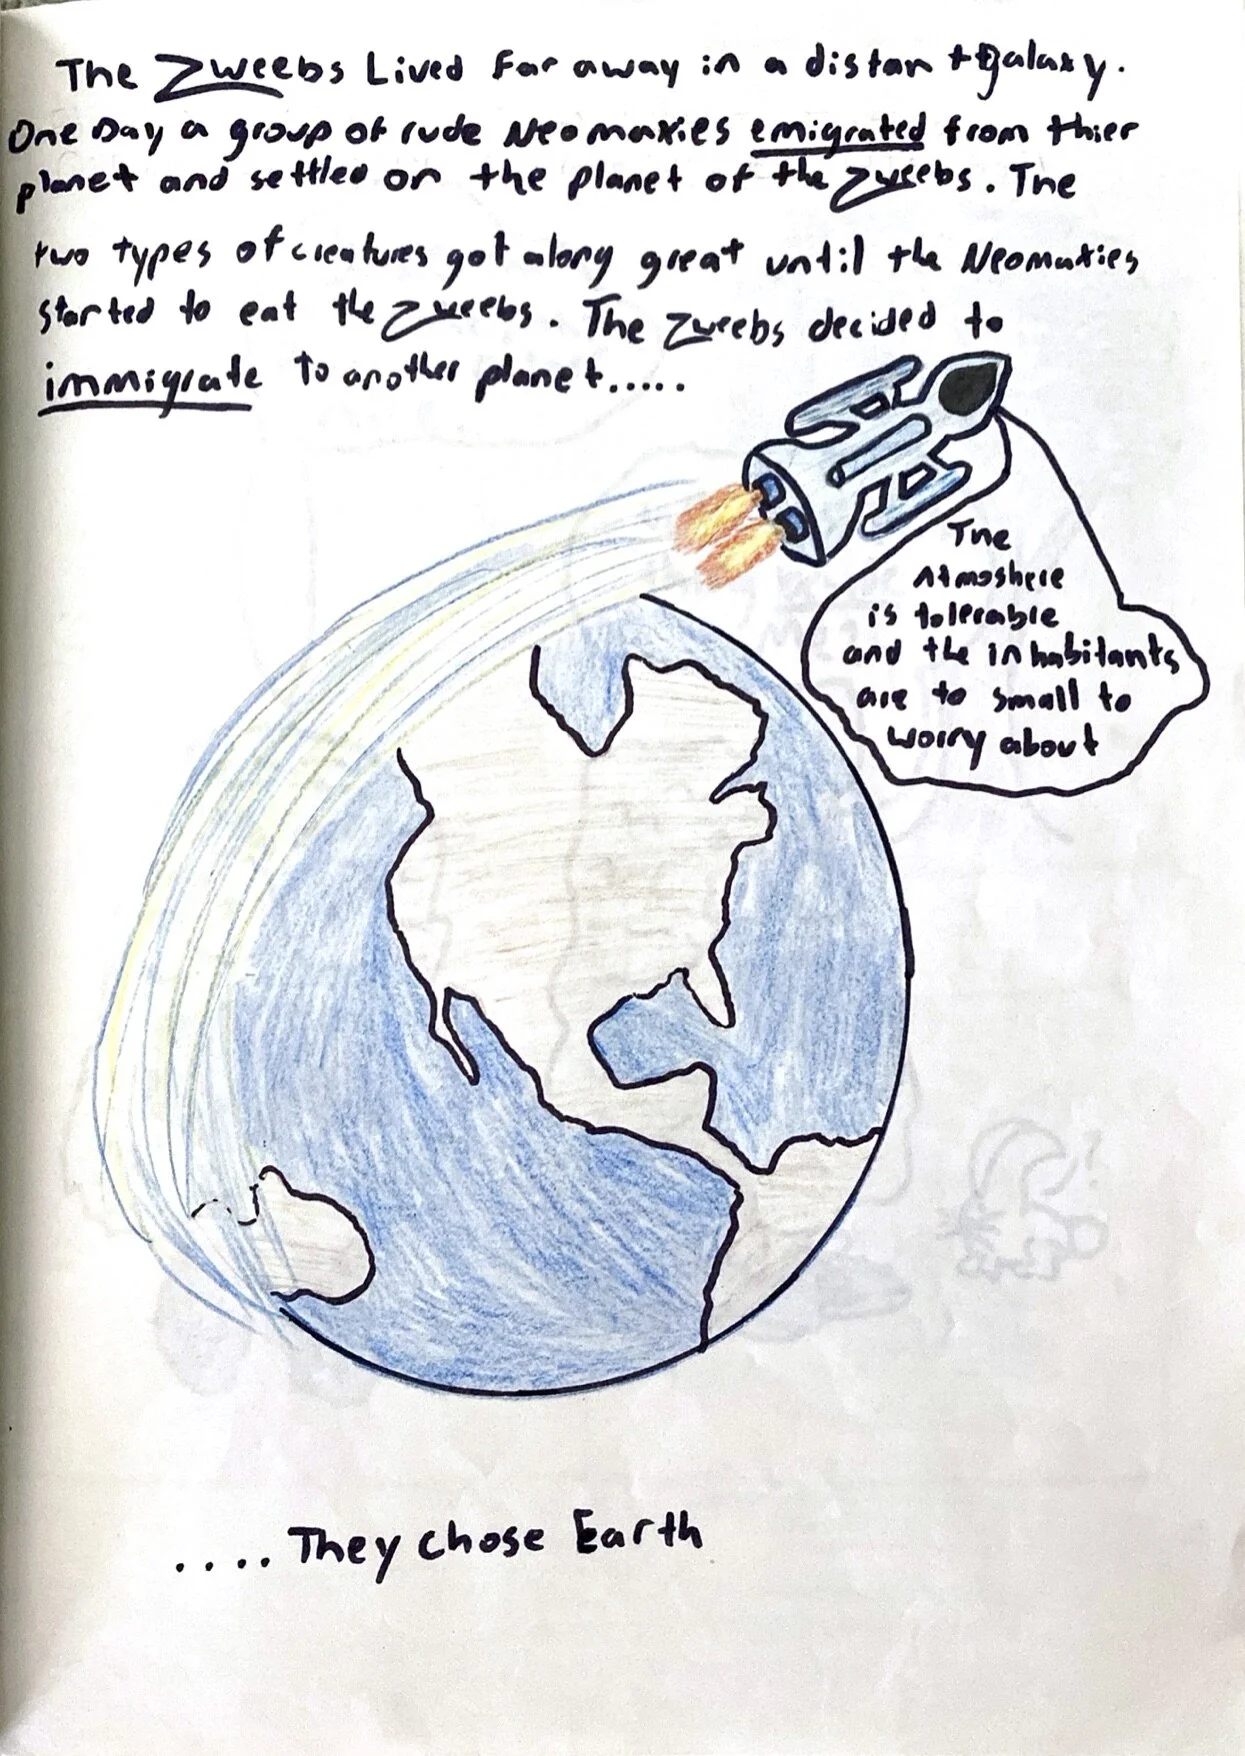 The Zweebs Lived Far away in a distant Galaxy.
One Day a group of rude Neomaxies emigrated from thier
planet and settled on the planet of the Zweebs. The
two types of creatures got along great until the Neomaxies
started to eat the Zweebs. The Zweebs decided to
immigrate to another planet.....
The
Atmoshere
is tolerable
and the inhabitants
are to small to
worry about
....They chose Earth